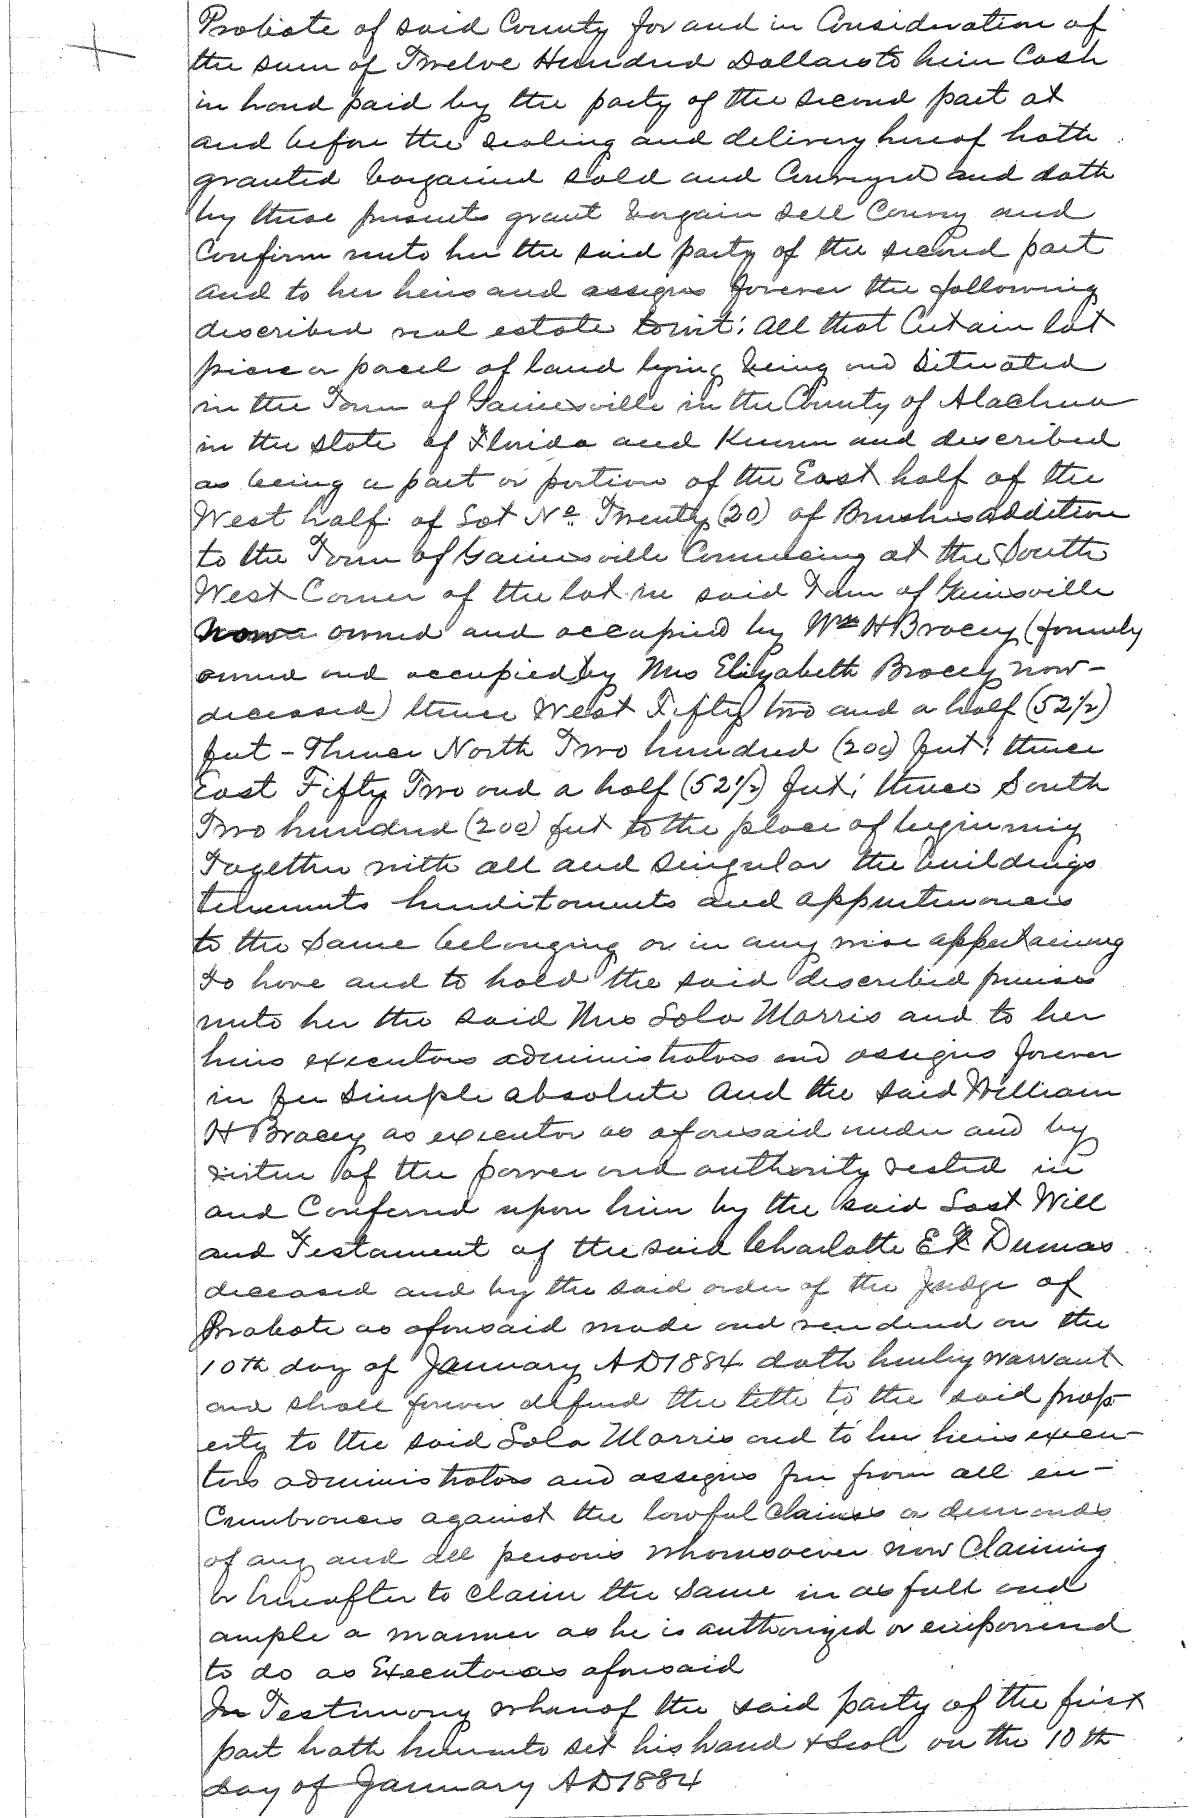 Probate of said County for and in Consideration of
the sum of Twelve Hundred Dollars to him Cash
in hand paid by the party of the second part at
and before the sealing and delivery hereof hath
granted bargained sold and Conveyed and doth
by these presents grant bargain sell Convey and
Confirm unto her the said party of the second part
and to her heirs and assigns forever the following
described real estate towit: All that Certain lot
piece or parcel of land lying being and Situated
in the Town of Gainesville in the County of Alachua
in the State of Florida and Known and described
as being a part or portion of the East half of the
West half of Lot No. Twenty (20) of Brushs addition
to the Town of Gainesville Commencing at the South
West Corner of the lot in said Town of Gainesville
now owned and occupied by Wm H Bracey (formerly
owned and occupied by Mrs Elizabeth Bracey now-
deceased) thence West Fifty two and a half (52 1/2)
feet - Thence North Two hundred (200) feet; thence
East Fifty Two and a half (52 1/2) feet; thence South
Two hundred (200) feet to the place of beginning
Together with all and singular the buildings
tenements hereditaments and appurtenances
to the same belonging or in any wise appertaining
To have and to hold the said described premises
unto her the said Mrs Lola Morris and to her
heirs executors administrators and assigns forever
in fee simple absolute and the said William
H Bracey as executor as aforesaid under and by
virtue of the power and authority vested in
and Conferred upon him by the said Last Will
and Testament of the said Charlotte E R Dumas
deceased and by the said order of the Judge of
Probate as aforesaid made and rendered on the
10th day of January AD 1884 doth hereby warrant
and shall forever defend the title to the said prop-
erty to the said Lola Morris and to her heirs execu-
tors administrators and assigns free from all en-
Cumbrances against the lawful Claims or demands
of any and all persons whomsoever now Claiming
or hereafter to Claim the same in as full and
ample a manner as he is authorized or empowered
to do as Executor as aforesaid
In Testimony whereof the said party of the first
part hath hereunto set his hand & Seal on the 10th
day of January AD 1884